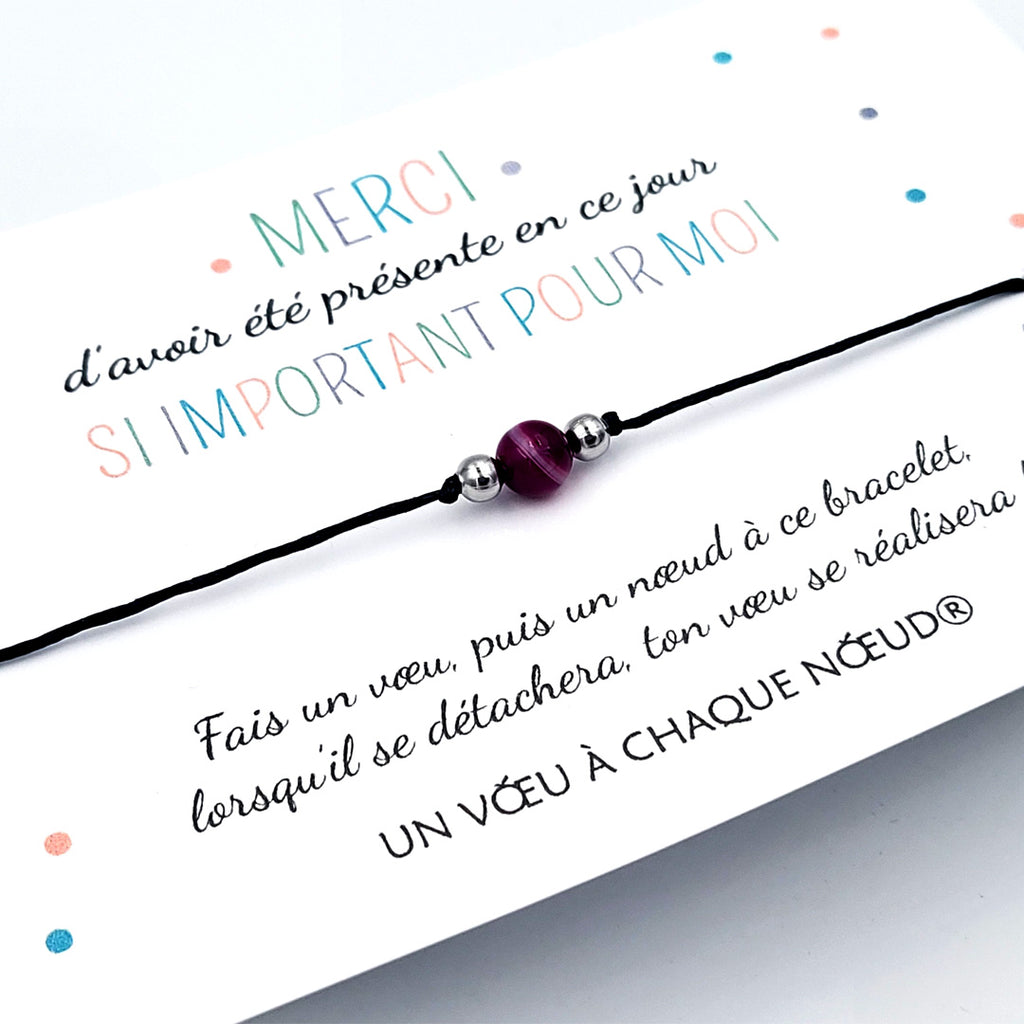 MERCI
d'avoir été présente en ce jour
SI IMPORTANT POUR MOI
Fais un vœu, puis un nœud à ce bracelet,
lorsqu'il se détachera, ton vœu se réalisera !
UN VŒU À CHAQUE NŒUD®